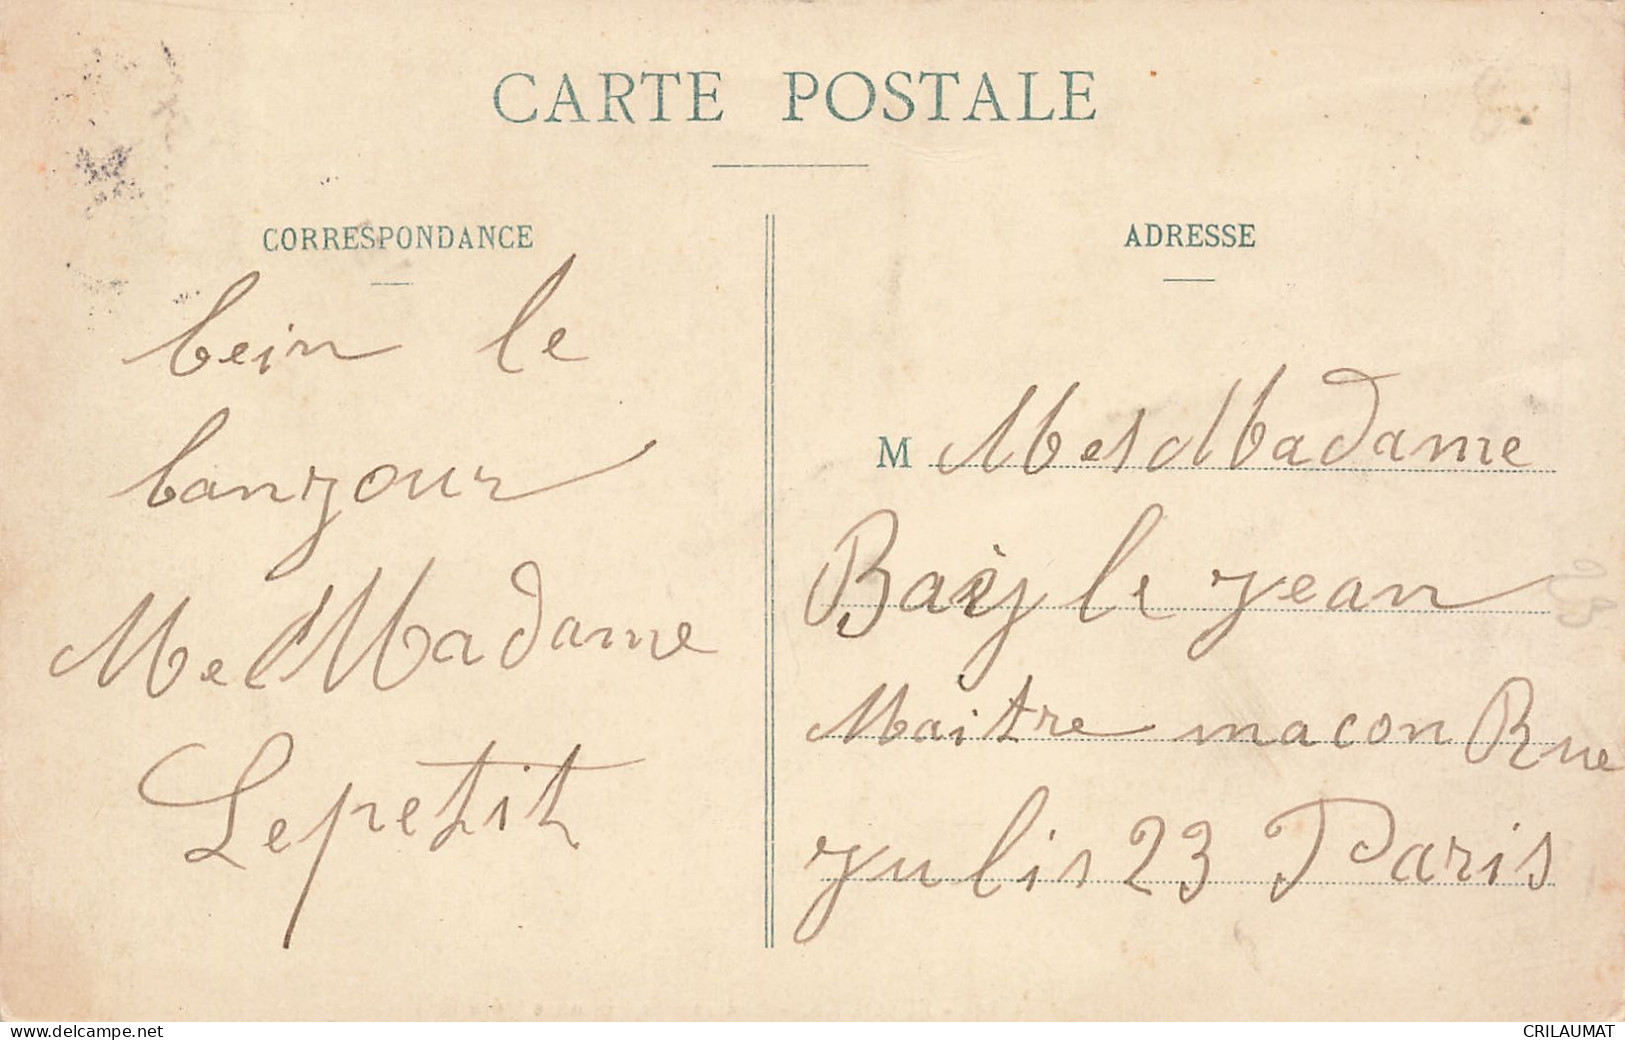 CARTE POSTALE
CORRESPONDANCE
bein le
banjour
Me Madame
Lepetit
ADRESSE
M Mes Madame
le jean
Maitre macon Rue
julis 23 Paris
www.delcampe.net
CRILAUMAT